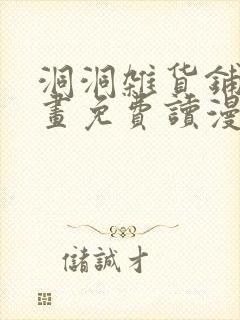 洞洞雜货鋪
畫免費讀漫
儲誠才